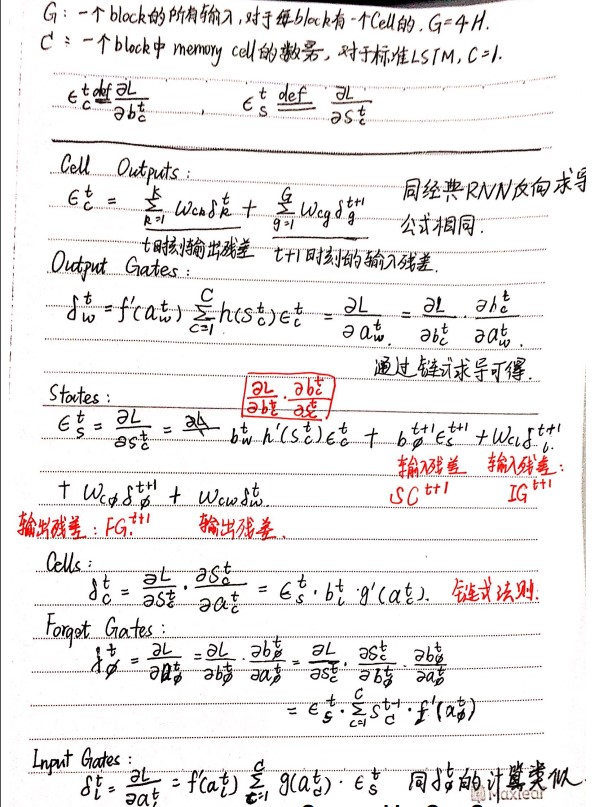 G: 一个block的所有输入,对于每block有一个Cell的. G=4H.
C: 一个block中 memory cell的数量, 对于标准LSTM, C=1.
ϵ_c^t def= ∂L/∂b_c^t , ϵ_s^t def= ∂L/∂s_c^t
Cell Outputs:
ϵ_c^t = Σ_{k=1}^{K} w_{ck} δ_k^t + Σ_{g=1}^{G} w_{cg} δ_g^{t+1} 同经典RNN反向求导
公式相同.
t时刻输出残差 t+1时刻的输入残差.
Output Gates:
δ_w^t = f'(a_w^t) Σ_{c=1}^{C} h(s_c^t) ϵ_c^t = ∂L/∂a_w^t = ∂L/∂b_c^t · ∂b_c^t/∂a_w^t.
通过链式求导可得.
States: ∂L/∂b_c^t · ∂b_c^t/∂s_c^t
ϵ_s^t = ∂L/∂s_c^t = b_w^t h'(s_c^t) ϵ_c^t + b_ϕ^{t+1} ϵ_s^{t+1} + w_{cι} δ_ι^{t+1}
输入残差 输入残差:
SC^{t+1} IG^{t+1}
+ w_{cϕ} δ_ϕ^{t+1} + w_{cw} δ_w^t.
输出残差: FG^{t+1} 输出残差.
Cells:
δ_c^t = ∂L/∂s_c^t · ∂s_c^t/∂a_c^t = ϵ_s^t · b_ι^t · g'(a_c^t). 链式法则.
Forgot Gates:
δ_ϕ^t = ∂L/∂a_ϕ^t = ∂L/∂b_ϕ^t · ∂b_ϕ^t/∂a_ϕ^t = ∂L/∂s_c^t · ∂s_c^t/∂b_ϕ^t · ∂b_ϕ^t/∂a_ϕ^t
= ϵ_s^t · Σ_{c=1}^{C} s_c^{t-1} · f'(a_ϕ^t)
Input Gates:
δ_ι^t = ∂L/∂a_ι^t = f'(a_ι^t) Σ_{c=1}^{C} g(a_c^t) · ϵ_s^t 同δ_ϕ^t的计算类似.